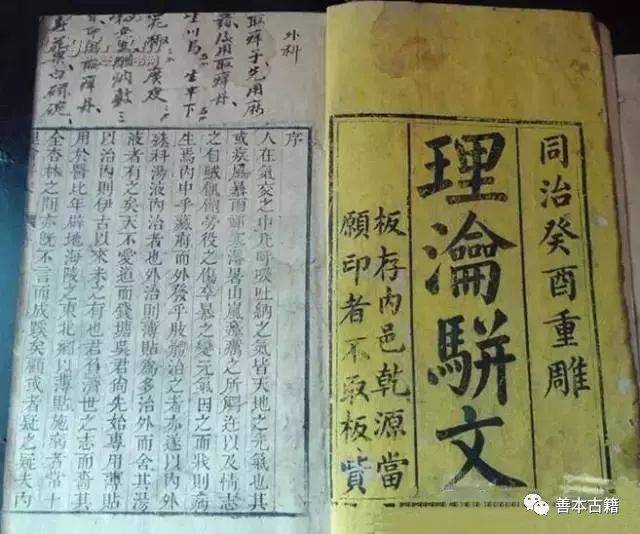 同治癸酉重雕
理瀹駢文
板存內邑乾源當
願印者不取板貲
外科
序
人在氣交之中凡呼吸吐納之氣皆天地之元氣也其
或疾風暴雨暑山嵐瘴癘之所觸迕以及情志
之自賊飢飽勞役之傷卒暴之變元氣因之而戕則病
生焉內中乎藏府而外發乎肢體治之者亦遂以內外
殊科湯液內治者也外治則薄貼爲多治外而舍其湯
液者有之矣天不愛道而錢塘吳君尚先始專用薄貼
以治內則伊古以來未之有也君爲濟世之志而嗇其
用於醫比年辟地海陵之東北鄉以薄貼施病者常十
全杏林之間亦旣不言而成蹊矣顧或者疑之疑夫內
善本古籍